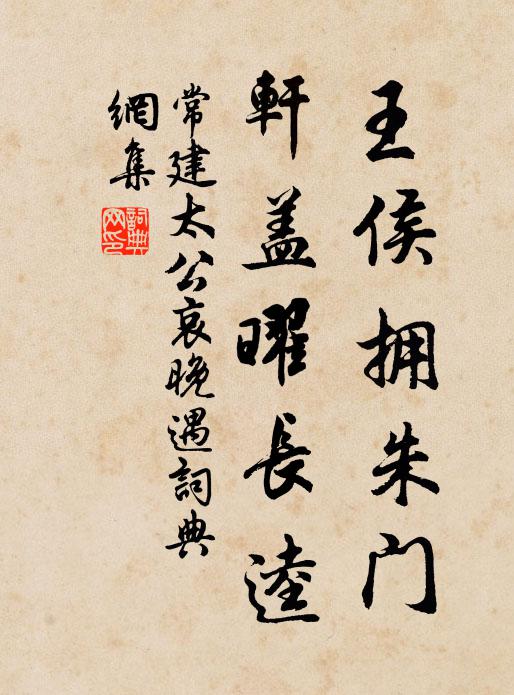 王侯拥朱门
軒盖曜長逵
常建太公哀晚遇詞典
網集
詞典
网印